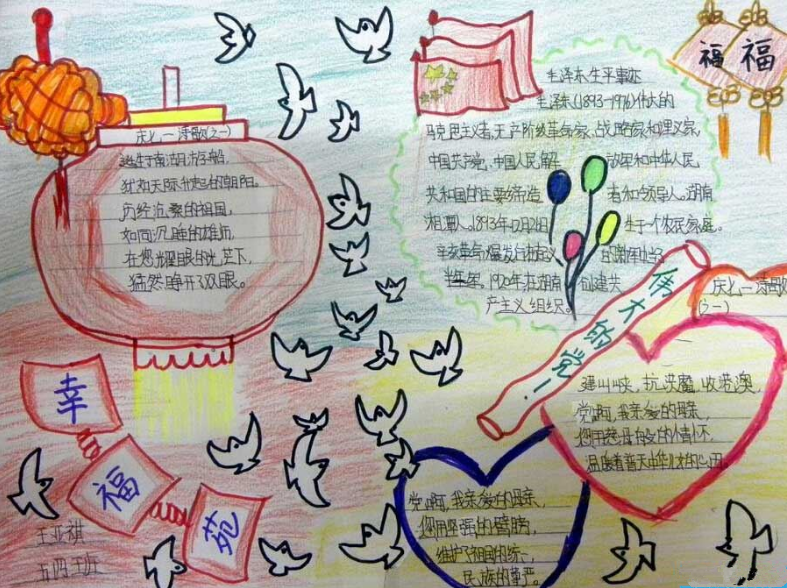 庆七一诗歌(之一)
诞生于南湖游船,
犹如天际升起的朝阳。
历经沧桑的祖国,
如同沉睡的雄狮,
在您光耀眼的光芒下,
猛然睁开了双眼。
幸
福
苑
王亚祺
福
福
毛泽东生平事迹
毛泽东(1893-1976)伟大的
马克思主义者,无产阶级革命家、战略家和理论家,
中国共产党、中国人民解放军和中华人民
共和国的主要缔造者和领导人。湖南
湘潭人。1893年12月26日生于一个农民家庭。
辛亥革命爆发后
半年。1920年在湖南创建共
产主义组织。
伟大的党!
庆七一诗歌
(之一)
建山峡,抗洪魔,收港澳,
党啊,我亲爱的母亲,
您用慈母般的情怀,
温暖着普天中华儿女的心田
党啊,我亲爱的母亲,
您用坚强的臂膀,
维护了祖国的统一,
民族的尊严。